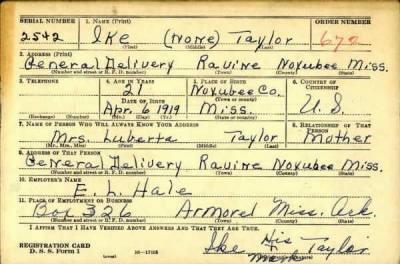 SERIAL NUMBER 1. NAME (Print) ORDER NUMBER
2542 Ike (None) Taylor 672
(First) (Middle) (Last)
2. ADDRESS (Print)
General Delivery Ravine Noxubee Miss.
(Number and street or R. F. D. number) (Town) (County) (State)
3. TELEPHONE 4. AGE IN YEARS 5. PLACE OF BIRTH 6. COUNTRY OF CITIZENSHIP
21 Noxubee Co.
DATE OF BIRTH (Town or county)
Apr. 6 1919 Miss. U. S.
(Exchange) (Number) (Mo.) (Day) (Yr.) (State or country)
7. NAME OF PERSON WHO WILL ALWAYS KNOW YOUR ADDRESS 8. RELATIONSHIP OF THAT PERSON
Mrs. Luberta Taylor Mother
(Mr., Mrs., Miss) (First) (Middle) (Last)
9. ADDRESS OF THAT PERSON
General Delivery Ravine Noxubee Miss.
(Number and street or R. F. D. number) (Town) (County) (State)
10. EMPLOYER'S NAME
E. L. Hale
11. PLACE OF EMPLOYMENT OR BUSINESS
Box 326 Armorel Miss. Ark.
(Number and street or R. F. D. number) (Town) (County) (State)
I AFFIRM THAT I HAVE VERIFIED ABOVE ANSWERS AND THAT THEY ARE TRUE.
REGISTRATION CARD
D. S. S. Form 1 (over) Ike His X Mark Taylor